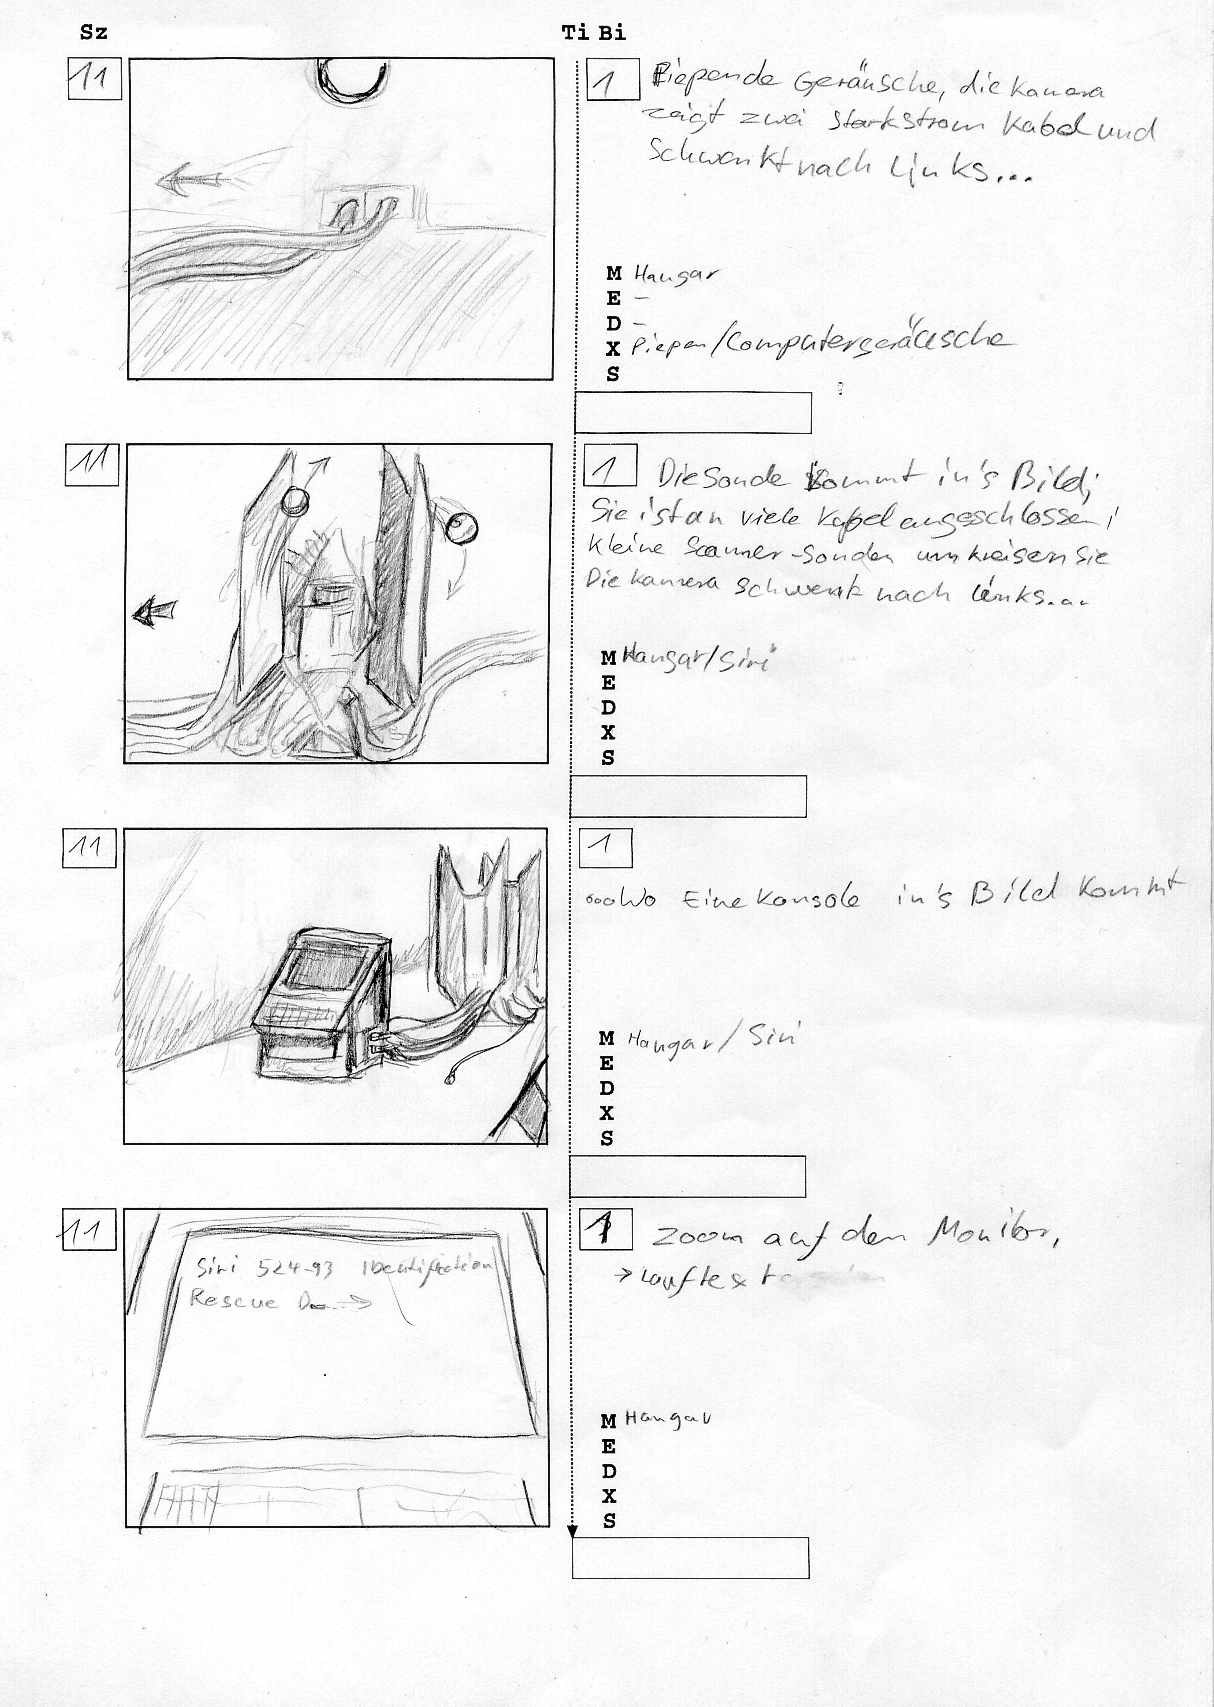 Sz Ti Bi
11
1
Piepende Geräusche, die Kamera
zeigt zwei Starkstrom Kabel und
Schwenkt nach Links...
M Hangar
E -
D -
X Piepen/Computergeräusche
S
11
1
Die Sonde kommt in's Bild;
Sie ist an viele Kabel angeschlossen!
Kleine Scanner-Sonden umkreisen Sie
Die Kamera schwenkt nach links...
M Hangar/Siri
E
D
X
S
11
1
...Wo Eine Konsole in's Bild Kommt
M Hangar/Siri
E
D
X
S
11
1
Zoom auf den Monitor,
→ Lauftext
Siri 524-93 Identification
Rescue →
M Hangar
E
D
X
S